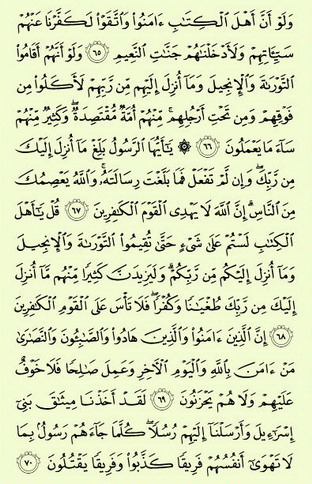 وَلَوۡ أَنَّ أَهۡلَ ٱلۡكِتَٰبِ ءَامَنُواْ وَٱتَّقَوۡاْ لَكَفَّرۡنَا عَنۡهُمۡ
سَيِّـَٔاتِهِمۡ وَلَأَدۡخَلۡنَٰهُمۡ جَنَّٰتِ ٱلنَّعِيمِ ٦٥ وَلَوۡ أَنَّهُمۡ أَقَامُواْ
ٱلتَّوۡرَىٰةَ وَٱلۡإِنجِيلَ وَمَآ أُنزِلَ إِلَيۡهِم مِّن رَّبِّهِمۡ لَأَكَلُواْ مِن
فَوۡقِهِمۡ وَمِن تَحۡتِ أَرۡجُلِهِمۚ مِّنۡهُمۡ أُمَّةٞ مُّقۡتَصِدَةٞۖ وَكَثِيرٞ مِّنۡهُمۡ
سَآءَ مَا يَعۡمَلُونَ ٦٦ ۞ يَٰٓأَيُّهَا ٱلرَّسُولُ بَلِّغۡ مَآ أُنزِلَ إِلَيۡكَ
مِن رَّبِّكَۖ وَإِن لَّمۡ تَفۡعَلۡ فَمَا بَلَّغۡتَ رِسَالَتَهُۥۚ وَٱللَّهُ يَعۡصِمُكَ
مِنَ ٱلنَّاسِۗ إِنَّ ٱللَّهَ لَا يَهۡدِي ٱلۡقَوۡمَ ٱلۡكَٰفِرِينَ ٦٧ قُلۡ يَٰٓأَهۡلَ
ٱلۡكِتَٰبِ لَسۡتُمۡ عَلَىٰ شَيۡءٍ حَتَّىٰ تُقِيمُواْ ٱلتَّوۡرَىٰةَ وَٱلۡإِنجِيلَ
وَمَآ أُنزِلَ إِلَيۡكُم مِّن رَّبِّكُمۡۗ وَلَيَزِيدَنَّ كَثِيرٗا مِّنۡهُم مَّآ أُنزِلَ
إِلَيۡكَ مِن رَّبِّكَ طُغۡيَٰنٗا وَكُفۡرٗاۖ فَلَا تَأۡسَ عَلَى ٱلۡقَوۡمِ ٱلۡكَٰفِرِينَ
٦٨ إِنَّ ٱلَّذِينَ ءَامَنُواْ وَٱلَّذِينَ هَادُواْ وَٱلصَّٰبِـُٔونَ وَٱلنَّصَٰرَىٰ
مَنۡ ءَامَنَ بِٱللَّهِ وَٱلۡيَوۡمِ ٱلۡأٓخِرِ وَعَمِلَ صَٰلِحٗا فَلَا خَوۡفٌ
عَلَيۡهِمۡ وَلَا هُمۡ يَحۡزَنُونَ ٦٩ لَقَدۡ أَخَذۡنَا مِيثَٰقَ بَنِيٓ
إِسۡرَٰٓءِيلَ وَأَرۡسَلۡنَآ إِلَيۡهِمۡ رُسُلٗاۖ كُلَّمَا جَآءَهُمۡ رَسُولُۢ بِمَا
لَا تَهۡوَىٰٓ أَنفُسُهُمۡ فَرِيقٗا كَذَّبُواْ وَفَرِيقٗا يَقۡتُلُونَ ٧٠